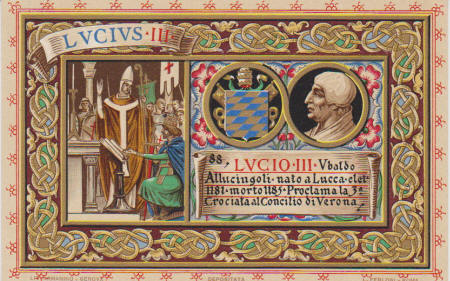 LVCIVS·III
88, LVCIO·III·Vbaldo
Allucingoli·nato a Lucca·elet
1181·morto 1185·Proclama la 3ª
Crociata al Concilio di Verona
DEPOSITATA